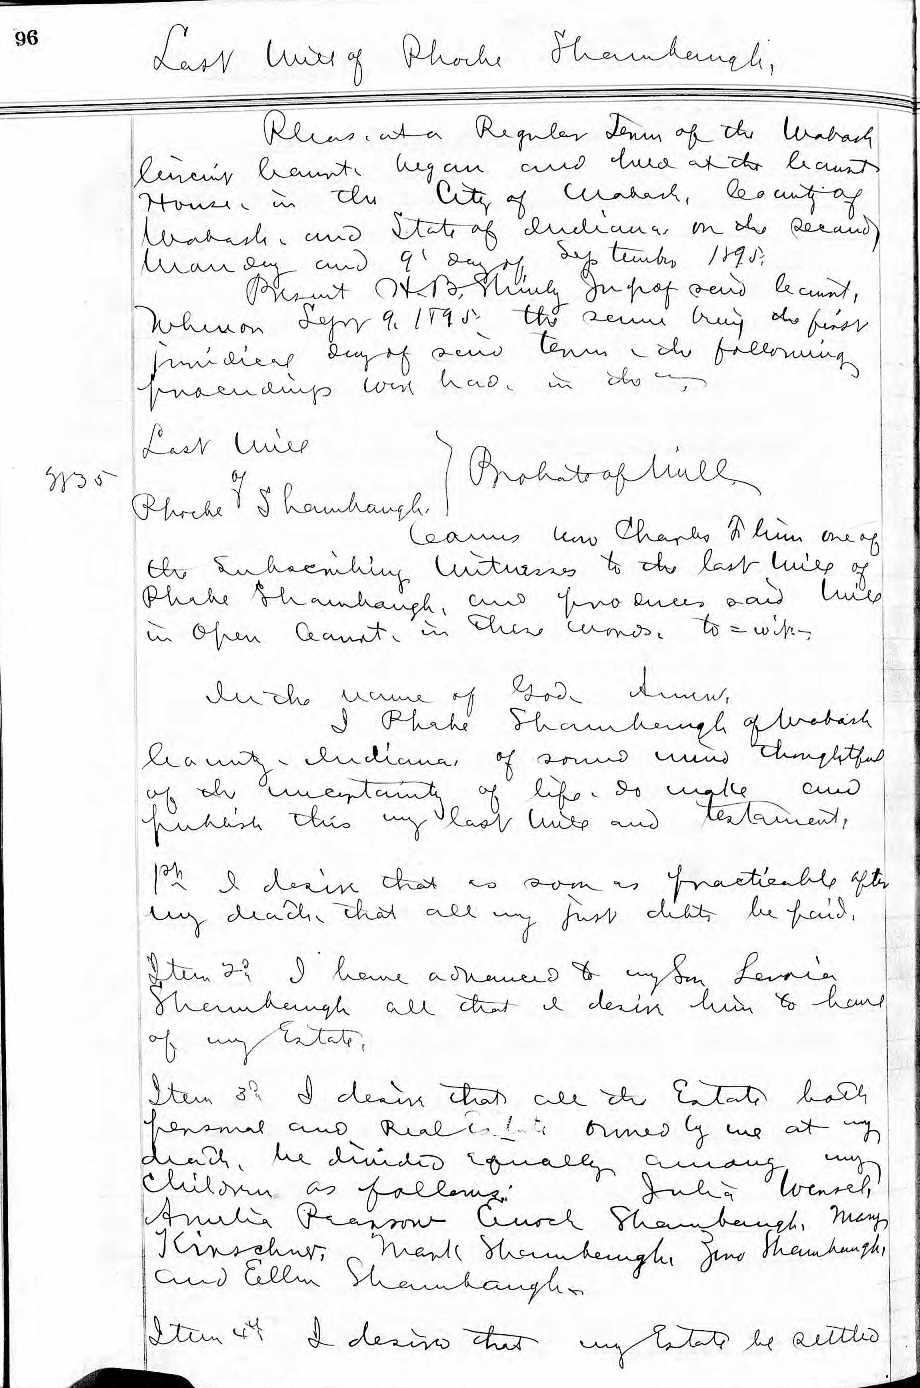 96
Last Will of Phoebe Shambaugh,
Pleas, at a Regular Term of the Wabash
Circuit Court, began and held at the Court
House, in the City of Wabash, County of
Wabash, and State of Indiana, on the second
Monday and 9" day of September 1895.
Present H. B. Shively Judge of said Court,
Whereon Sept 9. 1895 the same being the first
juridical day of said term, the following
proceedings were had, in the
Last Will
of
Phoebe Shambaugh.
Probate of Will
Comes now Charles one of
the Subscribing Witnesses to the last Will of
Phebe Shambaugh, and produces said Will
in Open Court, in these words, to=wit-;
In the name of God, Amen,
I Phebe Shambaugh of Wabash
County, Indiana, of sound mind thoughtful
of the uncertainty of life, do make and
publish this my last Will and testament,
1st I desire that as soon as practicable after
my death, that all my just debts be paid,
Item 2d I have advanced to my Son
Shambaugh all that I desire him to have
of my Estate,
Item 3d I desire that all the Estate both
personal and Real Estate owned by me at my
death, be divided Equally among my
Children as follows: Julia Wensel,
Amelia Pearson Enoch Shambaugh, Mary
Kirschner, Mark Shambaugh, Zeno Shambaugh,
and Ellen Shambaugh.
Item 4th I desire that my Estate be settled